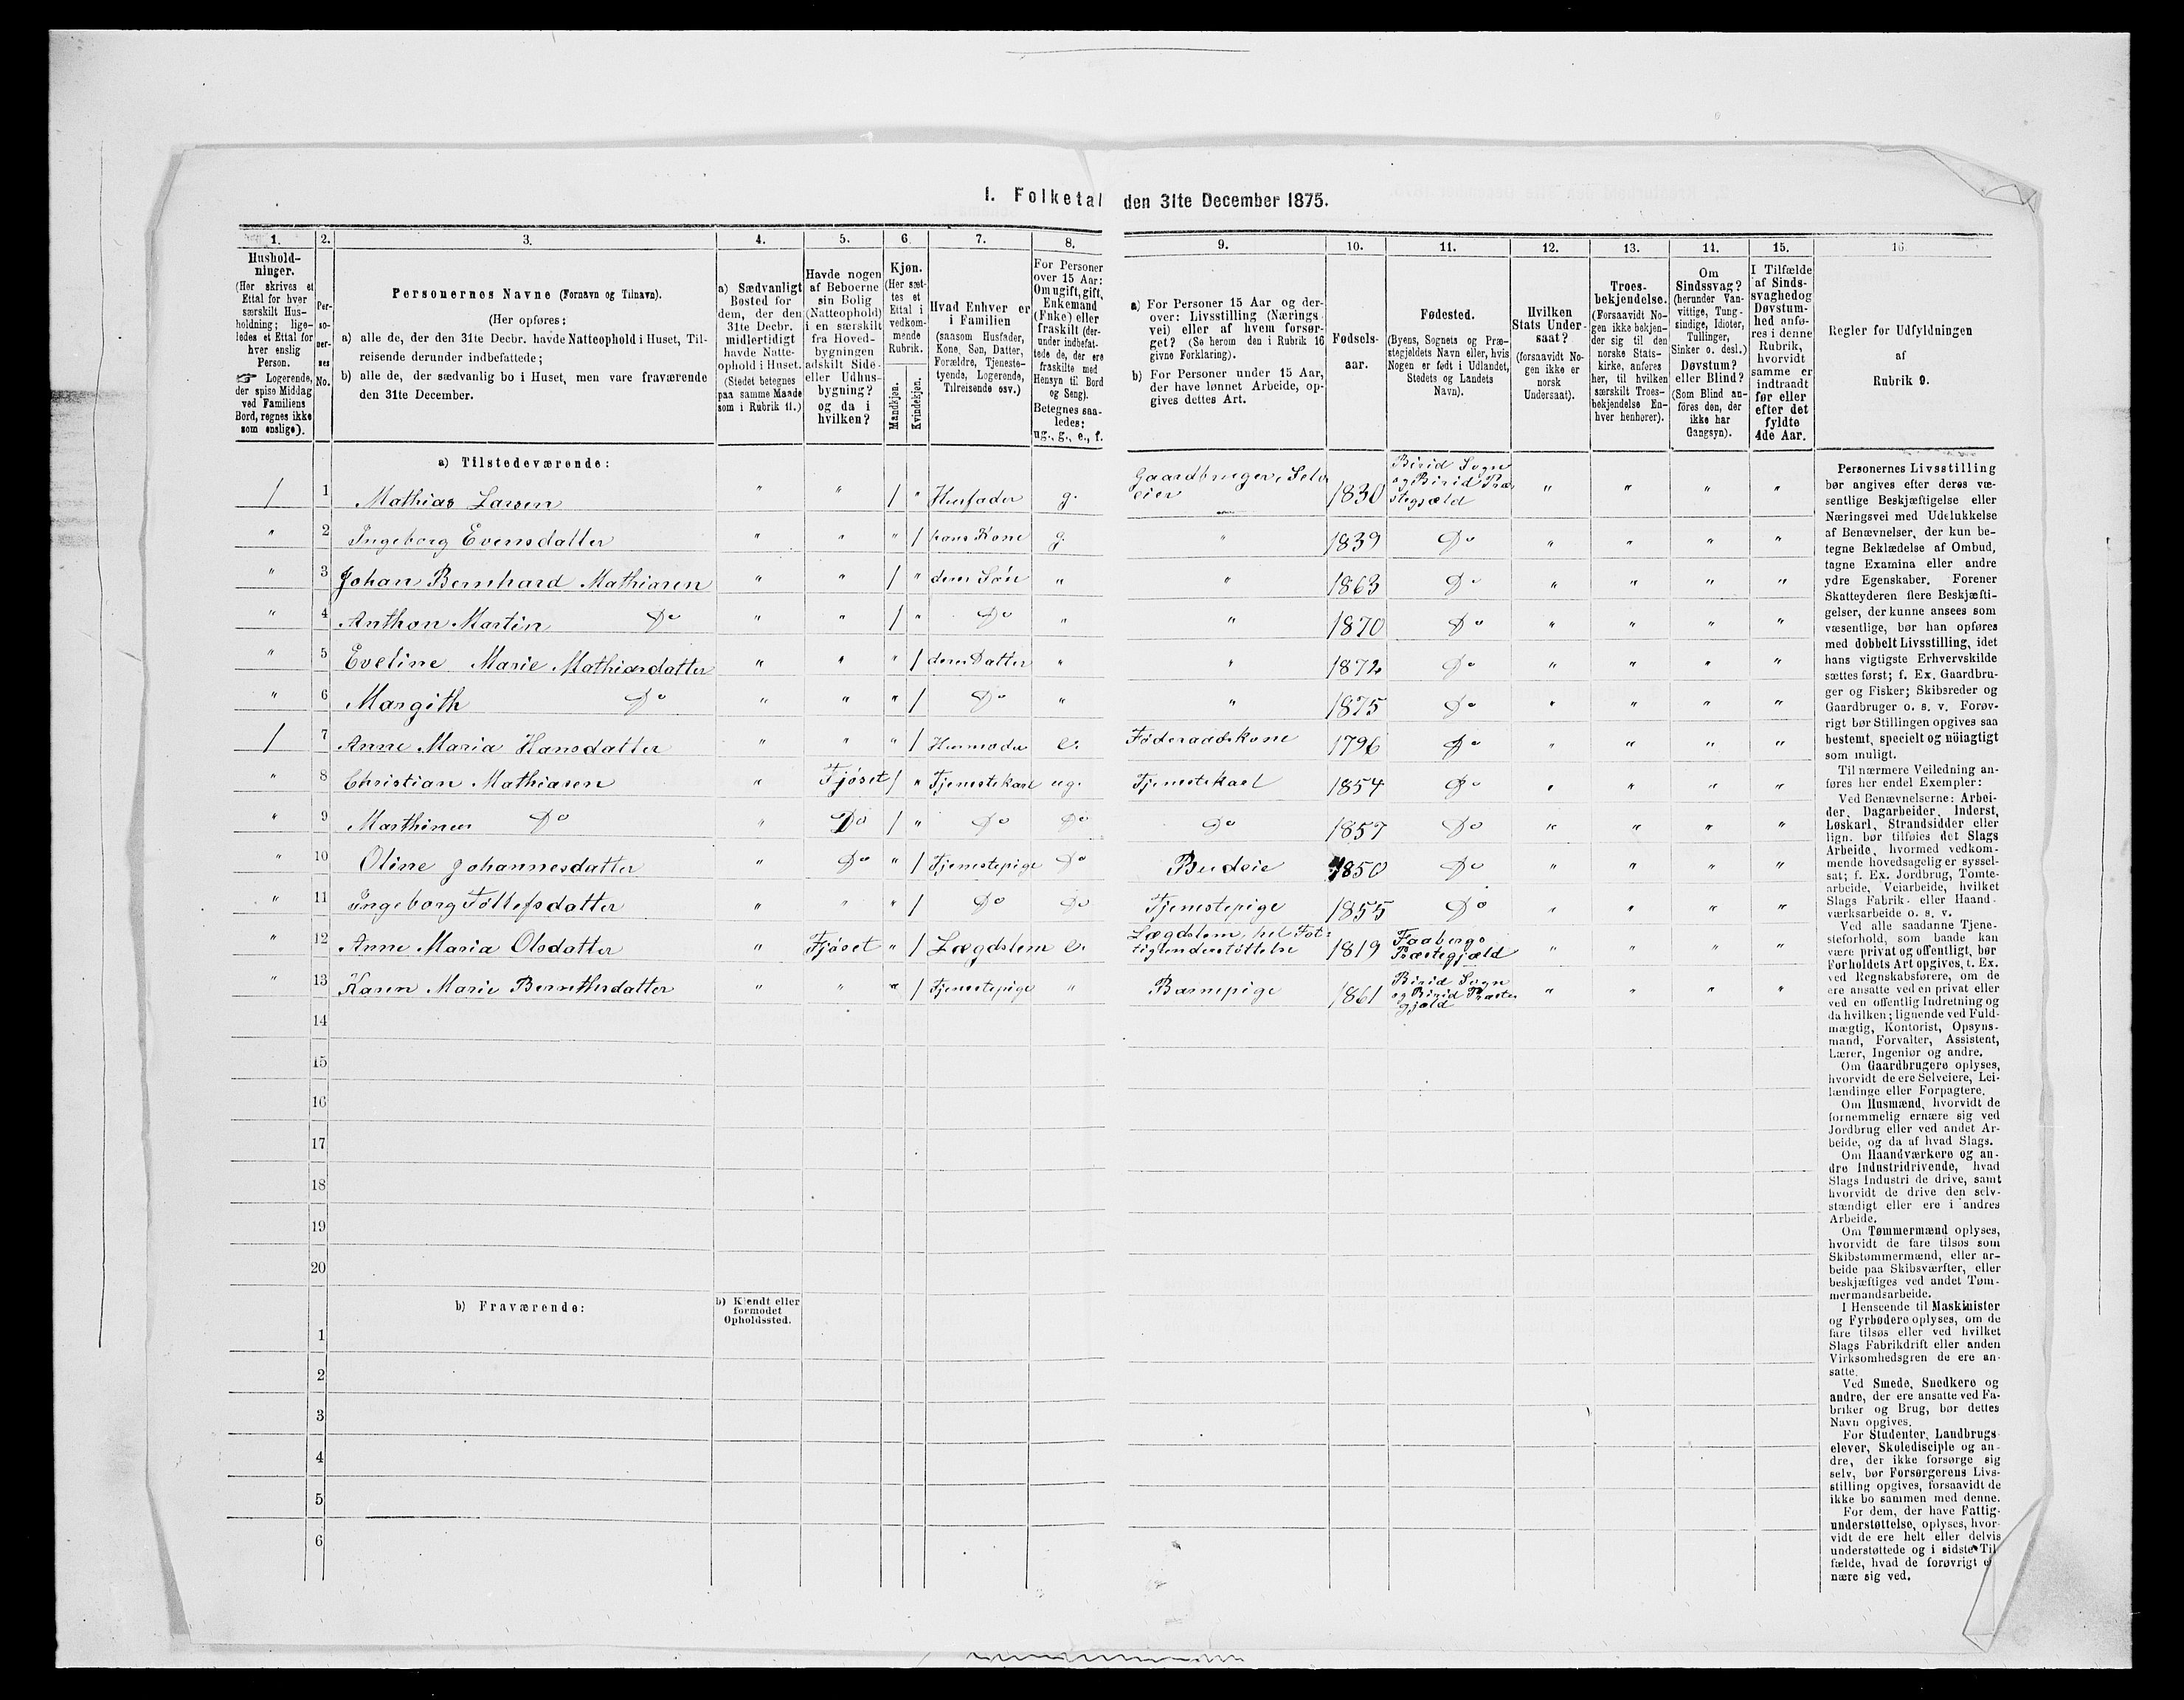 I. Folketal den 31te December 1875.
1. 2. 3. 4. 5. 6. 7. 8. 9. 10. 11. 12. 13. 14. 15. 16.
Hushold-
ninger.
(Her skrives et
Ettal for hver
særskilt Hus-
holdning; lige-
ledes et Ettal for
hver enslig
Person.
☞ Logerende,
der spise Middag
ved Familiens
Bord, regnes ikke
som enslige).
Per-
so-
ner-
nes
No.
Personernes Navne (Fornavn og Tilnavn).
(Her opføres:
a) alle de, der den 31te Decbr. havde Natteophold i Huset, Til-
reisende derunder indbefattede;
b) alle de, der sædvanlig bo i Huset, men vare fraværende
den 31te December.
a) Sædvanligt
Bosted for
dem, der den
31te Decbr.
midlertidigt
havde Natte-
ophold i Huset.
(Stedet betegnes
paa samme Maade
som i Rubrik 11.)
Havde nogen
af Beboerne
sin Bolig
(Natteophold)
i en særskilt
fra Hoved-
bygningen
adskilt Side-
eller Udhus-
bygning?
og da i
hvilken?
Kjøn.
(Her sæt-
tes et
Ettal i
vedkom-
mende
Rubrik.
Mandkjøn.
Kvindekjøn.
Hvad Enhver er
i Familien
(saasom Husfader,
Kone, Søn, Datter,
Forældre, Tjeneste-
tyende, Logerende,
Tilreisende osv.)
For Personer
over 15 Aar:
Om ugift, gift,
Enkemand
(Enke) eller
fraskilt (der-
under indbefat-
tede de, der ere
fraskilte med
Hensyn til Bord
og Seng).
Betegnes saa-
ledes:
ug., g., e., f.
a) For Personer 15 Aar og der-
over: Livsstilling (Nærings-
vei) eller af hvem forsør-
get? (Se herom den i Rubrik 16
givne Forklaring).
b) For Personer under 15 Aar,
der have lønnet Arbeide, op-
gives dettes Art.
Fødsels-
aar.
Fødested.
(Byens, Sognets og Præ-
stegjeldets Navn eller, hvis
Nogen er født i Udlandet,
Stedets og Landets
Navn).
Hvilken
Stats Under-
saat?
(forsaavidt No-
gen ikke er
norsk
Undersaat).
Troes-
bekjendelse.
(Forsaavidt No-
gen ikke bekjen-
der sig til den
norske Stats-
kirke, anføres
her, til hvilken
særskilt Troes-
bekjendelse En-
hver henhører).
Om
Sindssvag?
(herunder Van-
vittige, Tung-
sindige, Idioter,
Tullinger,
Sinker o. desl.)
Døvstum?
eller Blind?
(Som Blind an-
føres den, der
ikke har
Gangsyn).
I Tilfælde
af Sinds-
svaghed og
Døvstum-
hed anfø-
res i denne
Rubrik,
hvorvidt
samme er
indtraadt
før eller
efter det
fyldte
4de Aar.
Regler for Udfyldningen
af
Rubrik 9.
a) Tilstedeværende:
1 1 Mathias Larsen " " 1 " Husfader g. Gaardbruger, Selv eier 1830 Birid Sogn og Birid Præstegjæld " " " "
" 2 Ingeborg Evensdatter " " " 1 hans Kone g. " 1839 Do " " " "
" 3 Johan Bernhard Mathiasen " " 1 " deres Søn " " 1863 Do " " " "
" 4 Anthon Martin Do " " 1 " Do " " 1870 Do " " " "
" 5 Eveline Marie Mathiasdatter " " " 1 deres Datter " " 1872 Do " " " "
" 6 Margith Do " " " 1 Do " " 1875 Do " " " "
1 7 Anne Maria Hansdatter " " " 1 Husmoder e. Føderaadskone 1796 Do " " " "
" 8 Christian Mathiasen " Fjøset 1 " Tjenestekarl ug. Tjenestekarl 1854 Do " " " "
" 9 Marthinus Do " Do 1 " Do Do Do 1857 Do " " " "
" 10 Oline Johannesdatter " Do " 1 Tjenestepige Do Budeie 1850 Do " " " "
" 11 Ingeborg Tollefsdatter " " " 1 Do Do Tjenestepige 1855 Do " " " "
" 12 Anne Maria Olsdatter " Fjøset " 1 Lægdslem e. Lægdslem, hel Fattigunderstøttelse 1819 Faabergs Præstegjæld " " " "
" 13 Karen Marie Bernthsdatter " " " 1 Tjenestepige " Barnepige 1861 Birid Sogn og Birid Præstegjæld " " " "
14
15
16
17
18
19
20
b) Fraværende:
b) Kjendt eller
formodet
Opholdssted.
1
2
3
4
5
6
Personernes Livsstilling
bør angives efter deres væ-
sentlige Beskjæftigelse eller
Næringsvei med Udelukkelse
af Benævnelser, der kun be-
tegne Beklædelse af Ombud,
tagne Examina eller andre
ydre Egenskaber. Forener
Skatteyderen flere Beskjæfti-
gelser, der kunne ansees som
væsentlige, bør han opføres
med dobbelt Livsstilling, idet
hans vigtigste Erhvervskilde
sættes først; f. Ex. Gaardbru-
ger og Fisker; Skibsreder og
Gaardbruger o. s. v. Forøv-
rigt bør Stillingen opgives saa
bestemt, specielt og nöiagtigt
som muligt.
Til nærmere Veiledning an-
føres her endel Exempler:
Ved Benævnelserne: Arbei-
der, Dagarbeider, Inderst,
Løskarl, Strandsidder eller
lign. bør tilføies det Slags
Arbeide, hvormed vedkom-
mende hovedsagelig er syssel-
sat; f. Ex. Jordbrug, Tomte-
arbeide, Veiarbeide, hvilket
Slags Fabrik- eller Haand-
værksarbeide o. s. v.
Ved alle saadanne Tjene-
steforhold, som baade kan
være privat og offentligt, bør
Forholdets Art opgives, t. Ex.
ved Regnskabsførere, om de
ere ansatte ved en privat eller
ved en offentlig Indretning og
da hvilken; lignende ved Fuld-
mægtig, Kontorist, Opsyns-
mand, Forvalter, Assistent,
Lærer, Ingeniør og andre.
Om Gaardbrugere oplyses,
hvorvidt de ere Selveiere, Lei-
lændinge eller Forpagtere.
Om Husmænd, hvorvidt de
fornemmelig ernære sig ved
Jordbrug eller ved andet Ar-
beide, og da af hvad Slags.
Om Haandværkere og an-
dre Industridrivende, hvad
Slags Industri de drive, samt
hvorvidt de drive den selv-
stændigt eller ere i andres
Arbeide.
Om Tømmermænd oplyses,
hvorvidt de fare tilsøs som
Skibstømmermænd, eller ar-
beide paa Skibsværfter, eller
beskjæftiges ved andet Tøm-
mermandsarbeide.
I Henseende til Maskinister
og Fyrbødere oplyses, om de
fare tilsøs eller ved hvilket
Slags Fabrikdrift eller anden
Virksomhedsgren de ere an-
satte.
Ved Smede, Snedkere og
andre, der ere ansatte ved Fa-
briker og Brug, bør dettes
Navn opgives.
For Studenter, Landbrugs-
elever, Skoledisciple og an-
dre, der ikke forsørge sig
selv, bør Forsørgerens Livs-
stilling opgives, forsaavidt de
ikke bo sammen med denne.
For dem, der have Fattig-
understøttelse, oplyses, hvor-
vidt de ere helt eller delvis
understøttede og i sidste Til-
fælde, hvad de forøvrigt er-
nære sig ved.